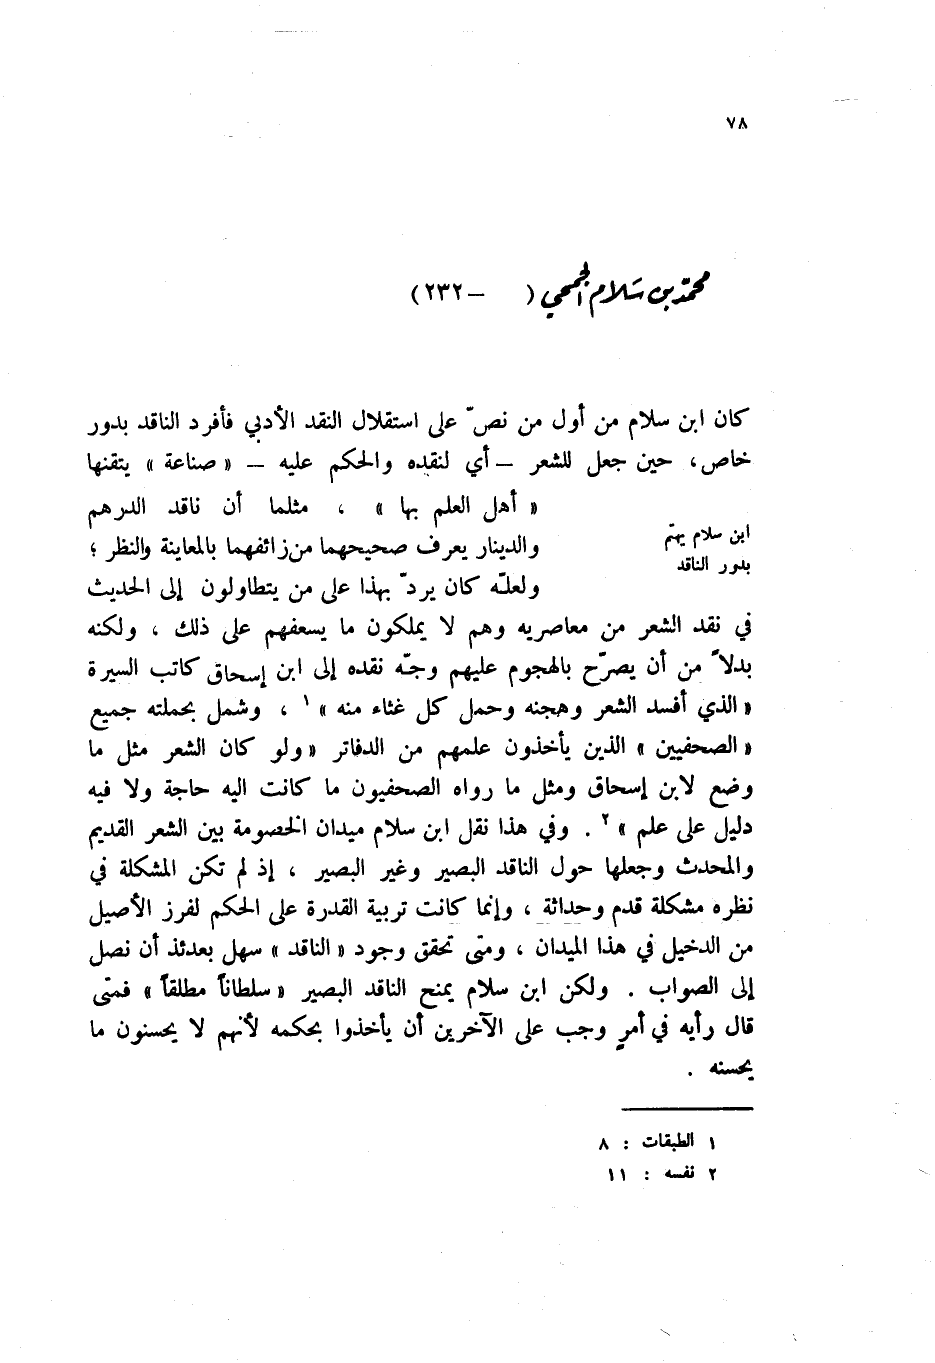 ٧٨
محمّد بن سَلام الجمحي ( – ٢٣٢)
كان ابن سلام من أول من نصّ على استقلال النقد الأدبي فأفرد الناقد بدور
خاص، حين جعل للشعر – أي لنقده والحكم عليه – « صناعة » يتقنها
« أهل العلم بها » ، مثلما أن ناقد الدرهم
ابن سلام يهتم
والدينار يعرف صحيحهما من زائفهما بالمعاينة والنظر ؛
بدور الناقد
ولعلّه كان يردّ بهذا على من يتطاولون إلى الحديث
في نقد الشعر من معاصريه وهم لا يملكون ما يسعفهم على ذلك ، ولكنه
بدلاً من أن يصرّح بالهجوم عليهم وجّه نقده إلى ابن إسحاق كاتب السيرة
« الذي أفسد الشعر وهجنه وحمل كل غثاء منه » ١ ، وشمل بحملته جميع
« الصحفيين » الذين يأخذون علمهم من الدفاتر « ولو كان الشعر مثل ما
وضع لابن إسحاق ومثل ما رواه الصحفيون ما كانت اليه حاجة ولا فيه
دليل على علم » ٢ . وفي هذا نقل ابن سلام ميدان الخصومة بين الشعر القديم
والمحدث وجعلها حول الناقد البصير وغير البصير ، إذ لم تكن المشكلة في
نظره مشكلة قدم وحداثة ، وإنما كانت تربية القدرة على الحكم لفرز الأصيل
من الدخيل في هذا الميدان ، ومتى تحقق وجود « الناقد » سهل بعدئذ أن نصل
إلى الصواب . ولكن ابن سلام يمنح الناقد البصير « سلطاناً مطلقاً » فمتى
قال رأيه في أمرٍ وجب على الآخرين أن يأخذوا بحكمه لأنهم لا يحسنون ما
يحسنه .
١ الطبقات : ٨
٢ نفسه : ١١